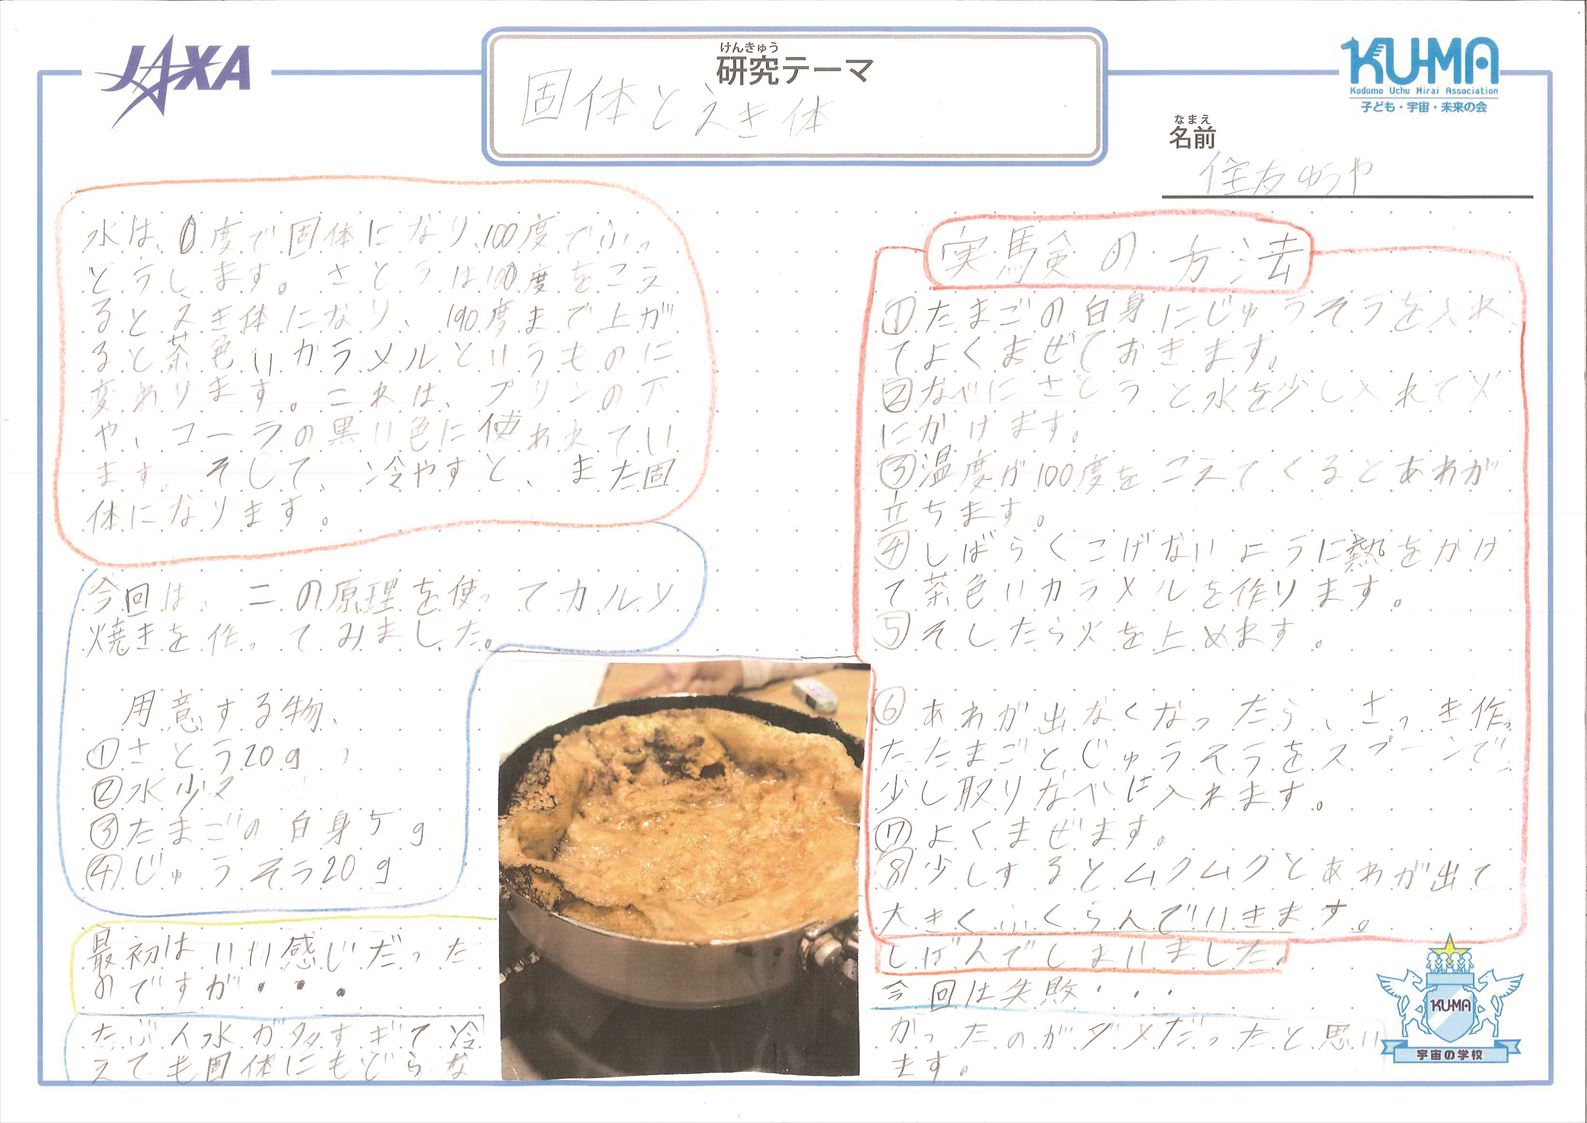 JAXA
けんきゅう
研究テーマ
固体とえき体
KU-MA
Kodomo Uchu Mirai Association
子ども・宇宙・未来の会
なまえ
名前
住友ゆうや
水は、0度で固体になり、100度でふっ
とうします。さとうは100度をこえ
るとえき体になり、190度まで上が
ると茶色いカラメルというものに
変わります。これは、プリンの下
や、コーラの黒い色に使われてい
ます。そして、冷やすと、また固
体になります。
今回は、この原理を使ってカルメ
焼きを作ってみました。
用意する物、
①さとう20g
②水少々
③たまごの白身5g
④じゅうそう20g
最初はいい感じだった
のですが・・・
たぶん水が多すぎて冷
えても固体にもどらな
実験の方法
①たまごの白身にじゅうそうを入れ
てよくまぜておきます。
②なべにさとうと水を少し入れて火
にかけます。
③温度が100度をこえてくるとあわが
立ちます。
④しばらくこげないように熱をかけ
て茶色いカラメルを作ります。
⑤そしたら火を止めます。
⑥あわが出なくなったら、さっき作っ
たたまごとじゅうそうをスプーンで
少し取りなべに入れます。
⑦よくまぜます。
⑧少しするとムクムクとあわが出て
大きくふくらんでいきます。
しぼんでしまいました。
今回は失敗・・・
かったのがダメだったと思い
ます。
KU-MA
宇宙の学校